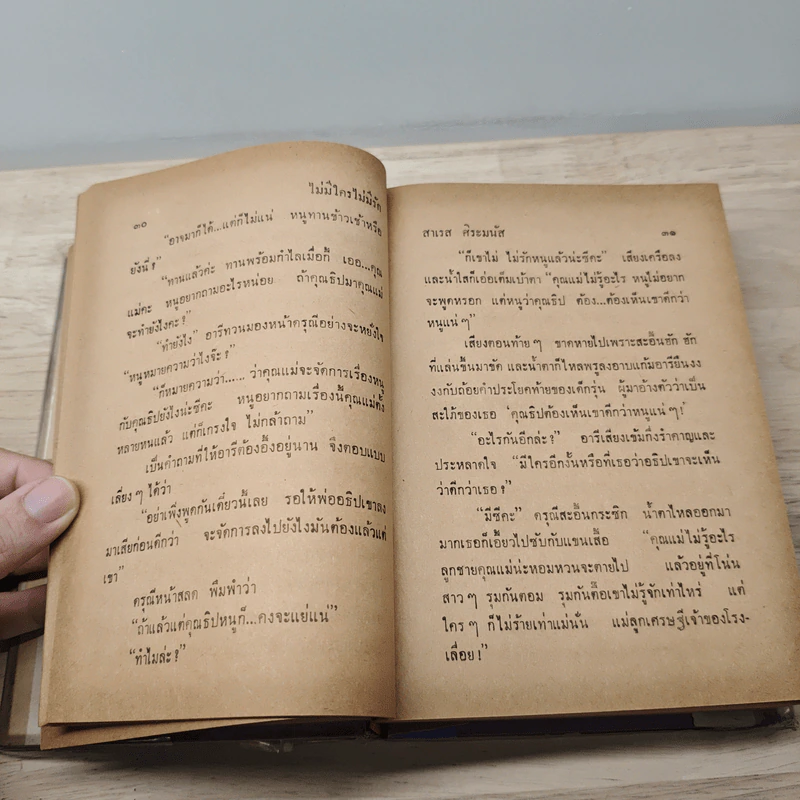 ไม่มีใครไม่มีรัก
๓๐
“อาจมาก็ได้...แต่ก็ไม่แน่ หนูทานข้าวเช้าหรือ
ยังนี่?”
“ทานแล้วค่ะ ทานพร้อมกำไลเมื่อกี้ เออ...คุณ
แม่คะ หนูอยากถามอะไรหน่อย ถ้าคุณธิปมาคุณแม่
จะทำยังไงคะ?”
“ทำยังไง” อารีทวนมองหน้าดรุณีอย่างจะหยั่งใจ
“หนูหมายความว่าไงจ๊ะ?”
“ก็หมายความว่า...... ว่าคุณแม่จะจัดการเรื่องหนู
กับคุณธิปยังไงน่ะซีคะ หนูอยากถามเรื่องนี้คุณแม่ตั้ง
หลายหนแล้ว แต่ก็เกรงใจ ไม่กล้าถาม”
เป็นคำถามที่ให้อารีต้องอึ้งอยู่นาน จึงตอบแบบ
เลี่ยง ๆ ได้ว่า
“อย่าเพิ่งพูดกันเดี๋ยวนี้เลย รอให้พ่ออธิปเขาลง
มาเสียก่อนดีกว่า จะจัดการลงไปยังไงมันต้องแล้วแต่
เขา”
ดรุณีหน้าสลด พึมพำว่า
“ถ้าแล้วแต่คุณธิปหนูก็...คงจะแย่แน่”
“ทำไมล่ะ?”
สาเรส ศิระมนัส ๓๑
“ก็เขาไม่ ไม่รักหนูแล้วน่ะซีคะ” เสียงเครือลง
และน้ำใสก็เอ่อเต็มเบ้าตา “คุณแม่ไม่รู้อะไร หนูไม่อยาก
จะพูดหรอก แต่หนูว่าคุณธิป ต้อง...ต้องเห็นเขาดีกว่า
หนูแน่ ๆ”
เสียงตอนท้าย ๆ ขาดหายไปเพราะสะอื้นฮัก ฮัก
ที่แล่นขึ้นมาขัด และน้ำตาก็ไหลพรูลงอาบแก้มอารียืนงง
งงกับถ้อยคำประโยคท้ายของเด็กรุ่น ผู้มาอ้างตัวว่าเป็น
สะใภ้ของเธอ ‘คุณธิปต้องเห็นเขาดีกว่าหนูแน่ ๆ!’
“อะไรกันอีกล่ะ?” อารีเสียงเข้มกึ่งรำคาญและ
ประหลาดใจ “มีใครอีกงั้นหรือที่เธอว่าอธิปเขาจะเห็น
ว่าดีกว่าเธอ?”
“มีซีคะ” ดรุณีสะอื้นกระซิก น้ำตาไหลออกมา
มากเธอก็เอี้ยวไปซับกับแขนเสื้อ “คุณแม่ไม่รู้อะไร
ลูกชายคุณแม่น่ะหอมหวนจะตายไป แล้วอยู่ที่โน่น
สาว ๆ รุมกันตอม รุมกันตื๊อเขาไม่รู้จักเท่าไหร่ แต่
ใคร ๆ ก็ไม่ร้ายเท่าแม่นั่น แม่ลูกเศรษฐีเจ้าของโรง-
เลื่อย!”